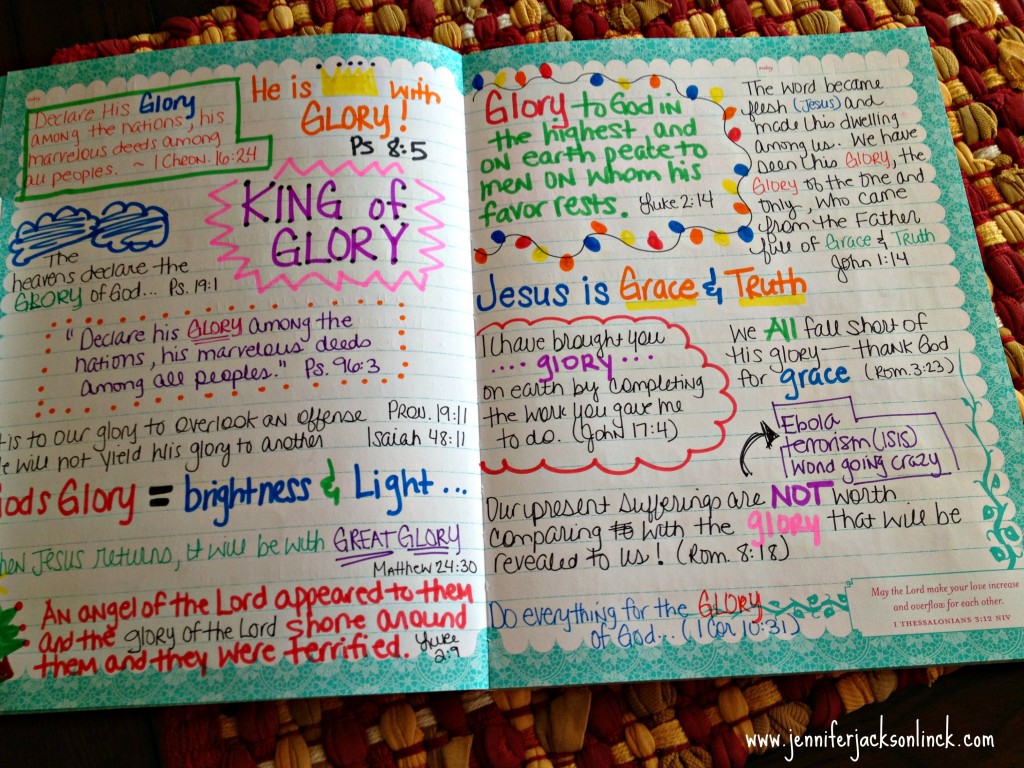 Declare His Glory
among the nations, his
marvelous deeds among
all peoples.
~ 1 Chron. 16:24
He is with
GLORY!
Ps 8:5
KING of
GLORY
The
heavens declare the
GLORY of God... Ps. 19:1
"Declare his GLORY among the
nations, his marvelous deeds
among all peoples." Ps. 96:3
is to our glory to overlook an offense Prov. 19:11
will not yield His glory to another Isaiah 48:11
Glory = brightness & Light...
Jesus returns, it will be with GREAT GLORY
Matthew 24:30
An angel of the Lord appeared to them
and the glory of the Lord shone around
them and they were terrified. Luke
2:9
today
Glory to God in
the highest, and
on earth peate to
men on whom his
favor rests. Luke 2:14
The word became
flesh (Jesus) and
made his dwelling
among us. We have
seen his Glory, the
Glory of the one and
only, who came
from the Father
full of Grace & Truth
John 1:14
Jesus is Grace & Truth
I have brought you
.... glory ...
on earth by completing
the work you gave me
to do. (John 17:4)
We All fall short of
His glory — thank God
for grace (Rom. 3:23)
Ebola
terrorism (ISIS)
World going crazy
Our present sufferings are NOT worth
comparing with the glory that will be
revealed to us! (Rom. 8:18)
Do everything for the GLORY
of God... (1 Cor 10:31)
May the Lord make your love increase
and overflow for each other.
1 THESSALONIANS 3:12 NIV
www.jenniferjacksonlinck.com